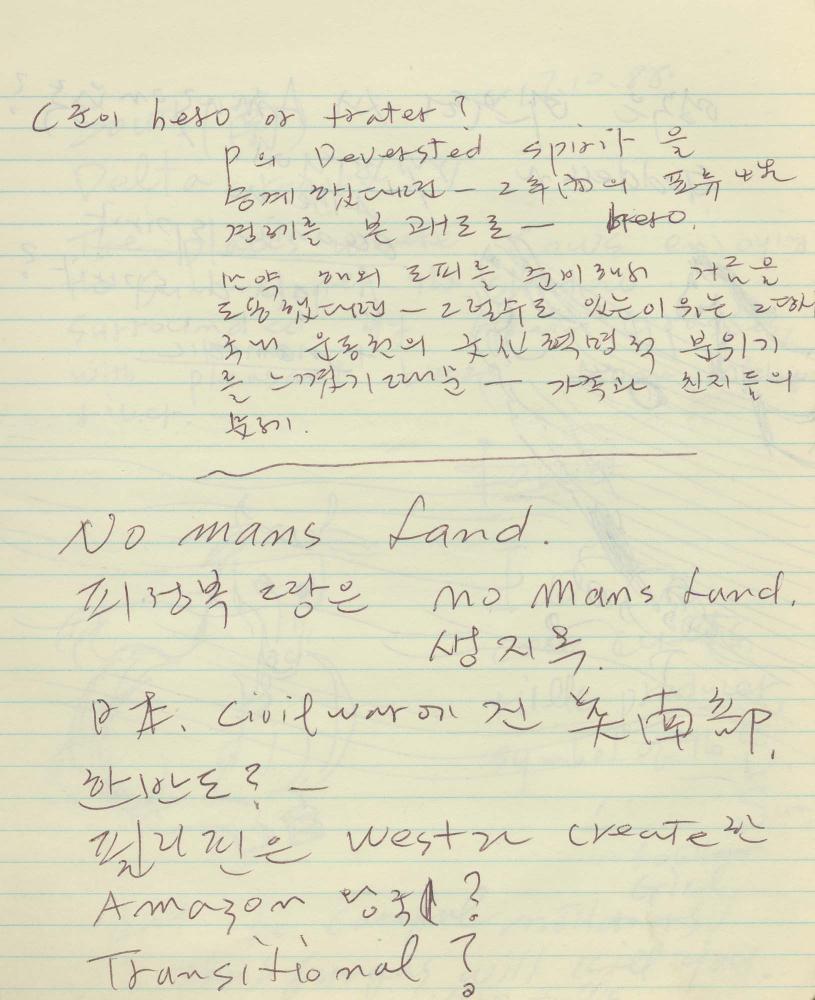 C군이 hero or trater?
P의 Deversted spirit 을
승계했더라면 — 그 후 의 표류
경레를 본 대로 — hero.
만약 해외 도피를 준비해서 거름을
도망했더라면 — 그럴수도 있는이유는 그당시
국내 운동권의 혁명적 분위기
를 느꼈기 때문 — 가족과 친지들의
문제.
No mans Land.
피정복 땅은 no mans Land.
생지옥.
日本. Civil war에 진 美南部.
한반도? —
필리핀은 West가 create한
Amazon 왕국?
Transitional?